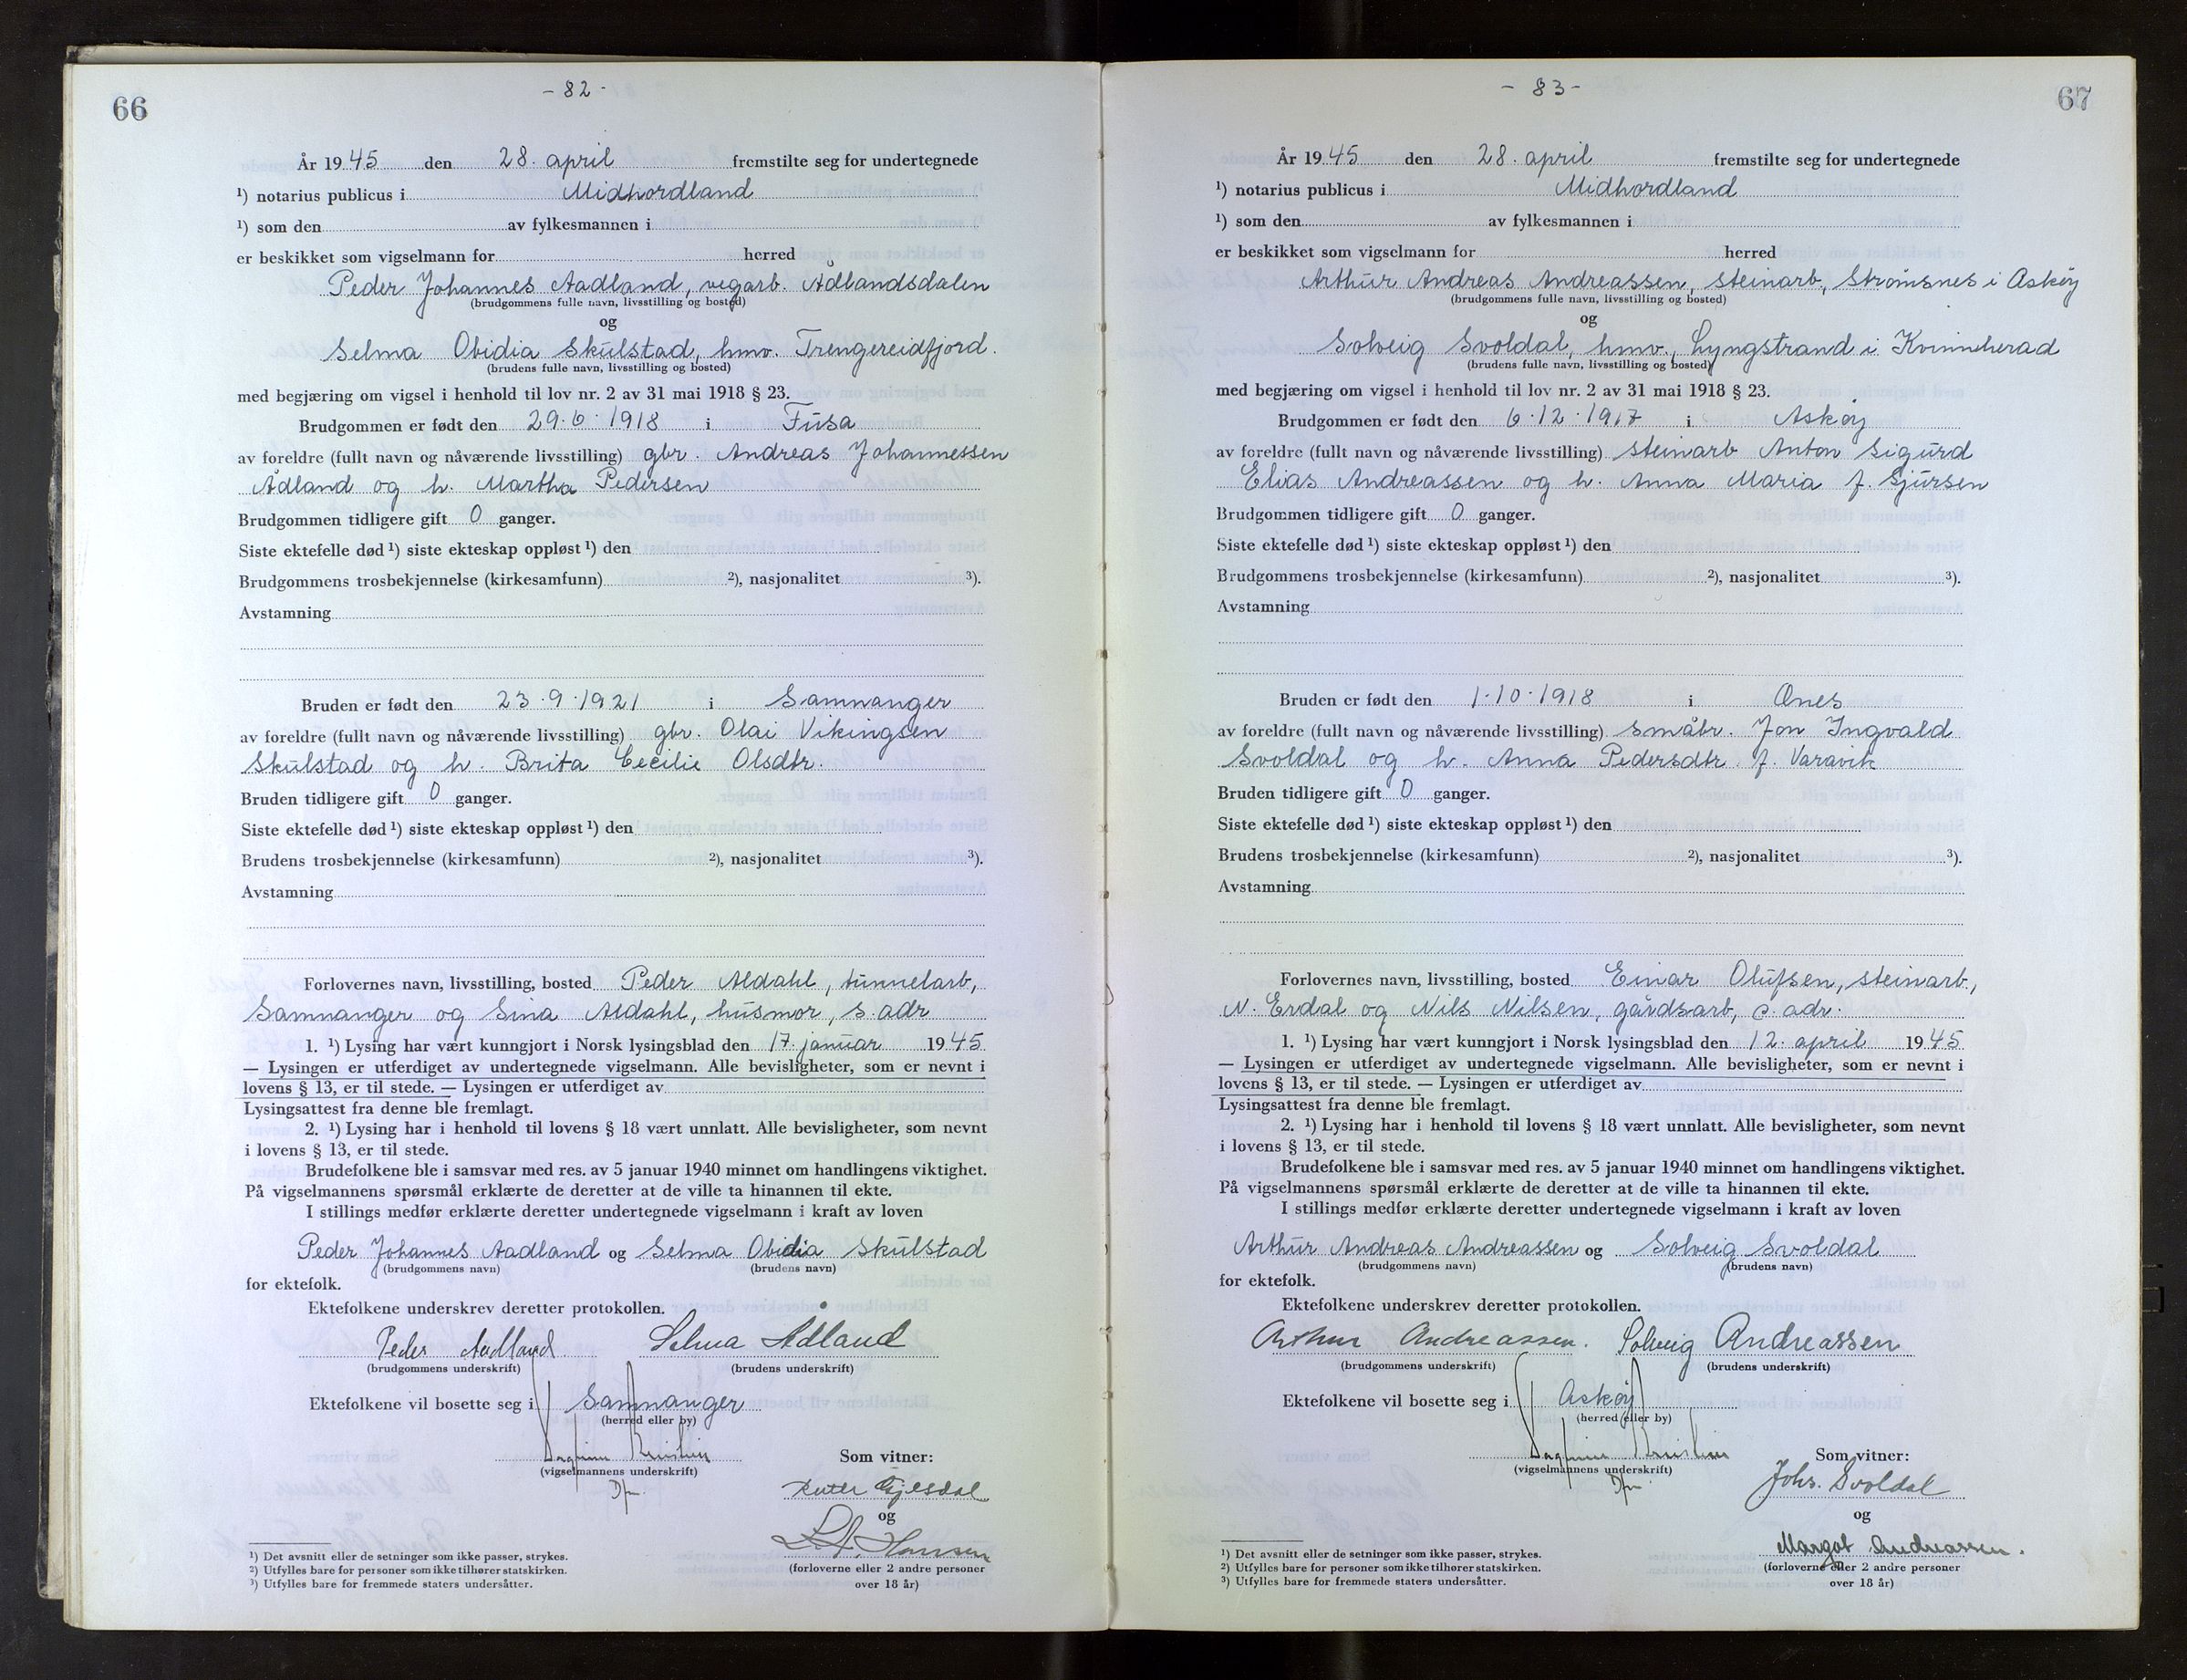 66
- 82 -
År 1945 den 28. april fremstilte seg for undertegnede
¹) notarius publicus i Midhordland
¹) som den av fylkesmannen i
er beskikket som vigselmann for herred
Peder Johannes Aadland, vegarb. Ådlandsdalen
(brudgommens fulle navn, livsstilling og bosted)
og
Selma Obidia Skulstad, hmv. Trengereidfjord.
(brudens fulle navn, livsstilling og bosted)
med begjæring om vigsel i henhold til lov nr. 2 av 31 mai 1918 § 23.
Brudgommen er født den 29.6.1918 i Fusa
av foreldre (fullt navn og nåværende livsstilling) gbr. Andreas Johannessen
Ådland og h. Martha Pedersen
Brudgommen tidligere gift 0 ganger.
Siste ektefelle død ¹) siste ekteskap oppløst ¹) den
Brudgommens trosbekjennelse (kirkesamfunn) ²), nasjonalitet ³).
Avstamning
Bruden er født den 23.9.1921 i Samnanger
av foreldre (fullt navn og nåværende livsstilling) gbr. Olai Vikingsen
Skulstad og h. Brita Cecilie Olsdtr.
Bruden tidligere gift 0 ganger.
Siste ektefelle død ¹) siste ekteskap oppløst ¹) den
Brudens trosbekjennelse (kirkesamfunn) ²), nasjonalitet ³).
Avstamning
Forlovernes navn, livsstilling, bosted Peder Aldahl, tunnelarb,
Samnanger og Sina Aldahl, husmor, s. adr
1. ¹) Lysing har vært kunngjort i Norsk lysingsblad den 17. januar 1945
— Lysingen er utferdiget av undertegnede vigselmann. Alle bevisligheter, som er nevnt i
lovens § 13, er til stede. — Lysingen er utferdiget av
Lysingsattest fra denne ble fremlagt.
2. ¹) Lysing har i henhold til lovens § 18 vært unnlatt. Alle bevisligheter, som nevnt
i lovens § 13, er til stede.
Brudefolkene ble i samsvar med res. av 5 januar 1940 minnet om handlingens viktighet.
På vigselmannens spørsmål erklærte de deretter at de ville ta hinannen til ekte.
I stillings medfør erklærte deretter undertegnede vigselmann i kraft av loven
Peder Johannes Aadland og Selma Obidia Skulstad
(brudgommens navn) (brudens navn)
for ektefolk.
Ektefolkene underskrev deretter protokollen.
Peder Aadland Selma Ådland
(brudgommens underskrift) (brudens underskrift)
Ektefolkene vil bosette seg i Samnanger
(herred eller by)
Som vitner:
(vigselmannens underskrift)
Dfm.
Gjesdal
og
L.A. Hansen
(forloverne eller 2 andre personer
over 18 år)
¹) Det avsnitt eller de setninger som ikke passer, strykes.
²) Utfylles bare for personer som ikke tilhører statskirken.
³) Utfylles bare for fremmede staters undersåtter.
67
- 83 -
År 1945 den 28. april fremstilte seg for undertegnede
¹) notarius publicus i Midhordland
¹) som den av fylkesmannen i
er beskikket som vigselmann for herred
Arthur Andreas Andreassen, steinarb, Strømsnes i Askøy
(brudgommens fulle navn, livsstilling og bosted)
og
Solveig Svoldal, hmv., Lyngstrand i Kvinnherad
(brudens fulle navn, livsstilling og bosted)
med begjæring om vigsel i henhold til lov nr. 2 av 31 mai 1918 § 23.
Brudgommen er født den 6.12.1917 i Askøy
av foreldre (fullt navn og nåværende livsstilling) steinarb Anton Sigurd
Elias Andreassen og h. Anna Maria f. Sjursen
Brudgommen tidligere gift 0 ganger.
Siste ektefelle død ¹) siste ekteskap oppløst ¹) den
Brudgommens trosbekjennelse (kirkesamfunn) ²), nasjonalitet ³).
Avstamning
Bruden er født den 1.10.1918 i Ønes
av foreldre (fullt navn og nåværende livsstilling) småbr. Jon Ingvald
Svoldal og h. Anna Pedersdtr. f. Varavik
Bruden tidligere gift 0 ganger.
Siste ektefelle død ¹) siste ekteskap oppløst ¹) den
Brudens trosbekjennelse (kirkesamfunn) ²), nasjonalitet ³).
Avstamning
Forlovernes navn, livsstilling, bosted Einar Olufsen, steinarb.,
N. Erdal og Nils Nilsen, gårdsarb, s. adr.
1. ¹) Lysing har vært kunngjort i Norsk lysingsblad den 12. april 1945
— Lysingen er utferdiget av undertegnede vigselmann. Alle bevisligheter, som er nevnt i
lovens § 13, er til stede. — Lysingen er utferdiget av
Lysingsattest fra denne ble fremlagt.
2. ¹) Lysing har i henhold til lovens § 18 vært unnlatt. Alle bevisligheter, som nevnt
i lovens § 13, er til stede.
Brudefolkene ble i samsvar med res. av 5 januar 1940 minnet om handlingens viktighet.
På vigselmannens spørsmål erklærte de deretter at de ville ta hinannen til ekte.
I stillings medfør erklærte deretter undertegnede vigselmann i kraft av loven
Arthur Andreas Andreassen og Solveig Svoldal
(brudgommens navn) (brudens navn)
for ektefolk.
Ektefolkene underskrev deretter protokollen.
Arthur Andreassen. Solveig Andreassen
(brudgommens underskrift) (brudens underskrift)
Ektefolkene vil bosette seg i Askøy
(herred eller by)
Som vitner:
(vigselmannens underskrift)
Dfm
Johs. Svoldal
og
Margot Andreassen.
(forloverne eller 2 andre personer
over 18 år)
¹) Det avsnitt eller de setninger som ikke passer, strykes.
²) Utfylles bare for personer som ikke tilhører statskirken.
³) Utfylles bare for fremmede staters undersåtter.